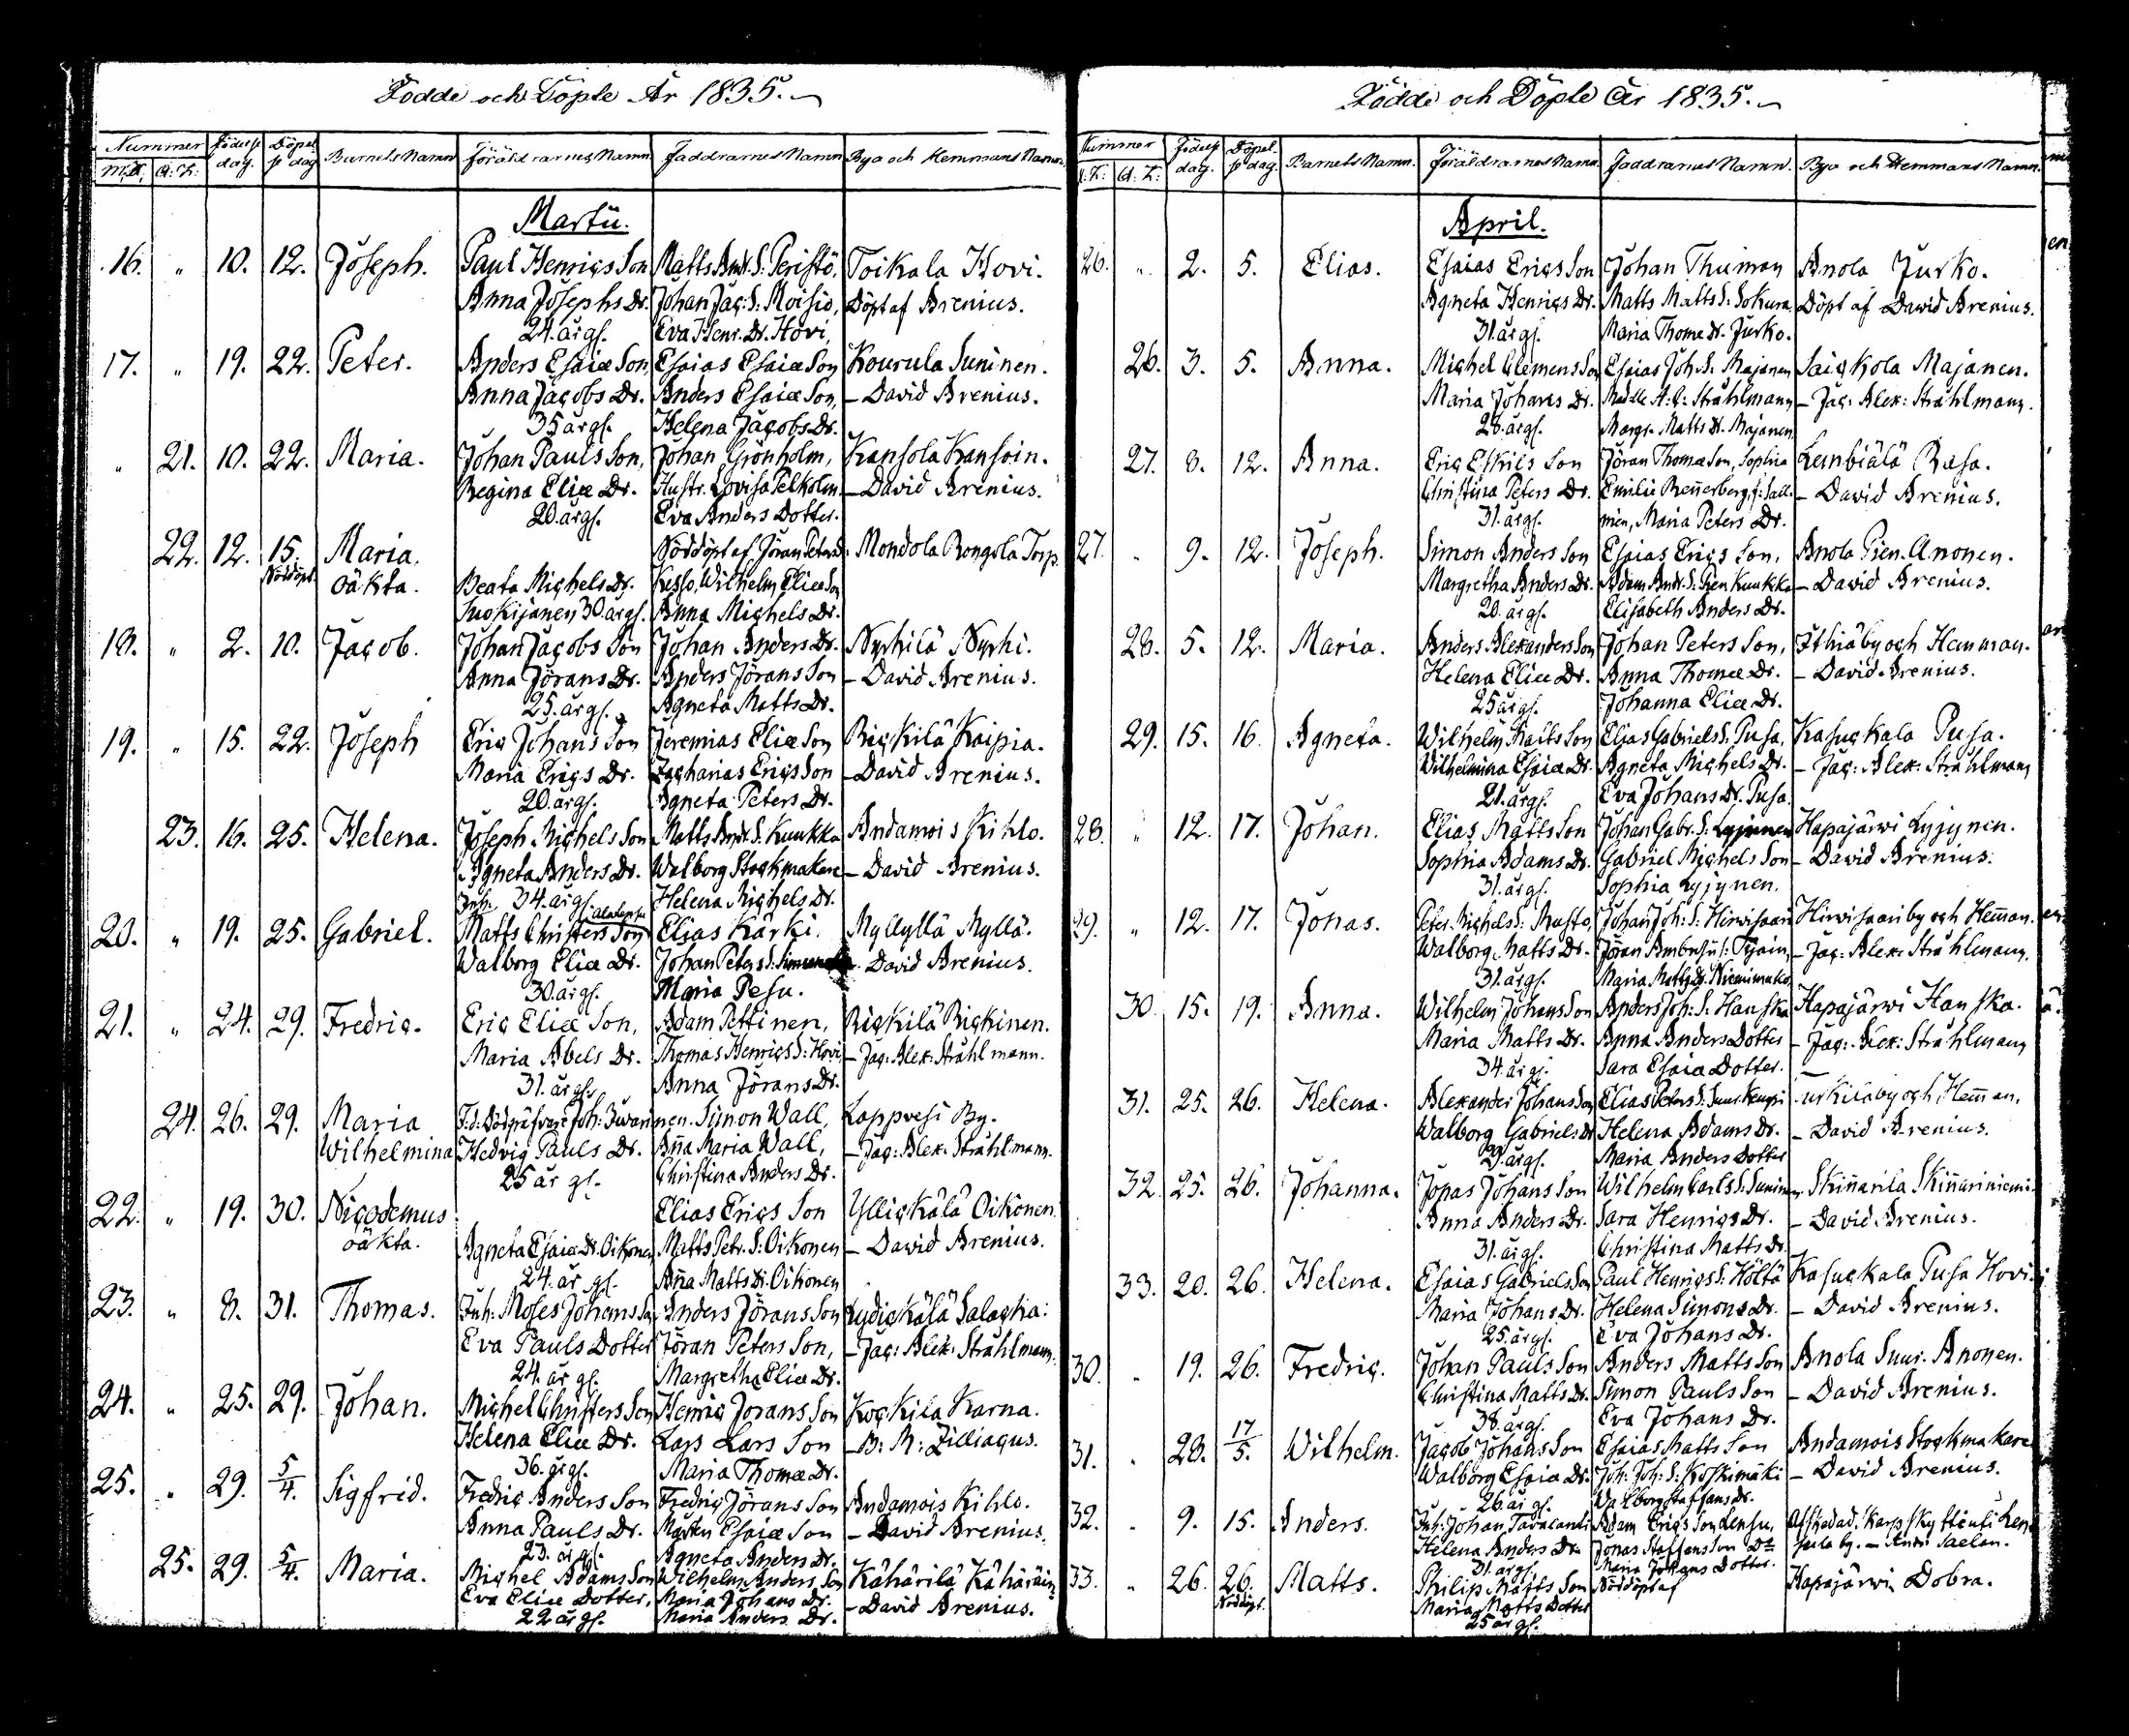 Födde och Döpte År 1835.
Nummer Födelse dag. Döpelse dag Barnets Namn Föräldrarnes Namn Faddrarnes Namn Bya och Hemmans Namn
M.K. Q.K.
Martii.
16. " 10. 12. Joseph. Paul Henrics Son Matts And. S. Peristö, Toikala Hovi.
Anna Josephs Dr. Johan Jac: S. Moisio, Döpt af Arenius.
24. år gl. Eva Henr. Dr. Hovi,
17. " 19. 22. Peter. Anders Esaiæ Son, Esaias Esaiæ Son Kourula Suninen.
Anna Jacobs Dr. Anders Esaiæ Son, – David Arenius.
35 år gl. Helena Jacobs Dr.
" 21. 10. 22. Maria. Johan Pauls Son, Johan Grönholm, Kansola Kansoin.
Regina Eliæ Dr. Hustr. Lovisa Pelkolm – David Arenius.
20. år gl. Eva Anders Dotter.
22. 12. 15. Maria. Nöddöpt af Jöran Peters Mondola Rongola Torp.
Nöddöpt. oäkta. Beata Michels Dr. Kesso, Wilhelm Eliæ Son
Suokijanen 30. år gl. Anna Michels Dr.
18. " 2. 10. Jacob. Johan Jacobs Son Johan Anders Dr. Nyrhilä Nyrhi.
Anna Jörans Dr. Anders Jörans Son – David Arenius.
25. år gl. Agneta Matts Dr.
19. " 15. 22. Joseph Eric Johans Son Jeremias Eliæ Son Rickilä Kaipia.
Maria Erics Dr. Zacharias Erics Son – David Arenius.
20. år gl. Agneta Peters Dr.
23. 16. 25. Helena. Joseph Michels Son Matts And. S. Kuukka Andamois Kihlo.
Agneta Anders Dr. Walborg Stockmakare – David Arenius.
Inh. 34. år gl. Helena Michels Dr.
20. " 19. 25. Gabriel. Matts Christers Son Elias Kärki. Myllyllä Myllä.
Walborg Eliæ Dr. Johan Peters S. – David Arenius.
30. år gl. Maria Pesu.
21. " 24. 29. Fredric. Eric Eliæ Son, Adam Pettinen, Rickilä Rickinen.
Maria Abels Dr. Thomas Henrics S: Hovi – Jac: Alex: Stråhlmann.
31. år gl. Anna Jörans Dr.
24. 26. 29. Maria Joh: Simon Wall, Lappvesi By.
Wilhelmina Hedvig Pauls Dr. Aña Maria Wall, – Jac: Alex: Stråhlmann.
25 år gl. Christina Anders Dr.
22. " 19. 30. Nicodemus Elias Erics Son Ylickälä Oikonen.
oäkta. Agneta Esaiæ Dr. Oikonen, Matts Petr. S: Oikonen – David Arenius.
24. år gl. Aña Matts Dr. Oikonen
23. " 8. 31. Thomas. Inh: Moses Johans Son Anders Jörans Son Lydickälä Salackia:
Eva Pauls Dotter Jöran Peters Son, – Jac: Alex: Stråhlmann.
24. år gl. Margretha Eliæ Dr.
24. " 25. 29. Johan. Michel Christers Son Henric Jorans Son Kockila Karna.
Helena Eliæ Dr. Lars Lars Son – B: M: Zilliacus.
36. år gl. Maria Thomæ Dr.
25. " 29. 5/4. Sigfrid. Fredric Anders Son Fredric Jörans Son Andamois Kihlo.
Anna Pauls Dr. Morten Esaiæ Son – David Arenius.
23. år gl. Agneta Anders Dr.
25. 29. 5/4. Maria. Michel Adams Son Wilhelm Anders Son Kähärilä Kähäräin
Eva Eliæ Dotter, Maria Johans Dr. – David Arenius.
22 år gl. Maria Anders Dr.
Födde och Döpte År 1835.
Nummer Födelse dag. Döpelse dag. Barnets Namn. Föräldrarnes Namn. Faddrarnes Namn. Bya och Hemmans Namn.
Q. K:
April.
26. " 2. 5. Elias. Esaias Erics Son Johan Thuman Anola Jurko.
Agneta Henrics Dr. Matts Matts S: Sokura Döpt af David Arenius.
31. år gl. Maria Thome Dr. Jurko.
26. 3. 5. Anna. Michel Clemens Son Esaias Joh. S. Majanen Saickola Majanen.
Maria Johans Dr. Madlle A: C: Stråhlmann – Jac: Alex: Stråhlmann.
28. år gl. Margr. Matts Dr. Majanen
27. 8. 12. Anna. Eric Eskils Son Jöran Thomæ Son, Sophia Lembiälä Rasa.
Christina Peters Dr. Emilie Reñerberg, f: Sall- – David Arenius.
31. år gl. mén, Maria Peters Dr.
27. " 9. 12. Joseph. Simon Anders Son Esaias Erics Son, Anola Pien Anonen.
Margretha Anders Dr. Adam And. S. Pien Kuukka – David Arenius.
20. år gl. Elisabeth Anders Dr.
28. 5. 12. Maria. Anders Alexanders Son Johan Peters Son, Ithiä by och Hemman.
Helena Eliæ Dr. Anna Thomæ Dr. – David Arenius.
25 år gl. Johanna Eliæ Dr.
29. 15. 16. Agneta. Wilhelm Matts Son Elias Gabriels S. Pusa, Kasuckala Pusa.
Wilhelmina Esaiæ Dr. Agneta Michels Dr. – Jac: Alex: Stråhlmann
21. år gl. Eva Johans Dr. Pusa.
28. " 12. 17. Johan. Elias Matts Son Johan Gabr. S: Lyjynen Hapajärwi Lyjynen.
Sophia Adams Dr. Gabriel Michels Son – David Arenius.
31. år gl. Sophia Lyjynen.
29. " 12. 17. Jonas. Peter Michels S: Musto, Johan Joh: S: Hirwisaari Hirwisaari by och Hem̄an.
Walborg Matts Dr. Jöran – Jac: Alex: Stråhlmann.
31. år gl. Maria Matts Dr. Niemimako
30. 15. 19. Anna. Wilhelm Johans Son Anders Joh: S. Hanska Hapajärwi Hanska.
Maria Matts Dr. Anna Anders Dotter – Jac: Alex: Stråhlmann
34. år gl. Sara Esaia Dotter.
31. 25. 26. Helena. Alexander Johans Son Elias Peters S: by och Hem̄an.
Walborg Gabriels Dr Helena Adams Dr. – David Arenius.
29. år gl. Maria Anders Dotter
32. 25. 26. Johanna. Jonas Johans Son Wilhelm Carls S: Suninen. Skiñarila Skiñariniemi.
Anna Anders Dr. Sara Henrics Dr. – David Arenius.
31. år gl. Christina Matts Dr.
33. 20. 26. Helena. Esaias Gabriels Son Paul Henrics S: Höltä Kasuckala Pusa Hovi.
Maria Johans Dr. Helena Simons Dr. – David Arenius.
25. år gl. Eva Johans Dr.
30. " 19. 26. Fredric. Johan Pauls Son Anders Matts Son Anola Suur. Anonen.
Christina Matts Dr. Simon Pauls Son – David Arenius.
38. år gl. Eva Johans Dr.
31. " 28. 17/5. Wilhelm. Jacob Johans Son Esaias Matts Son Andamois Stockmakare
Walborg Esaia Dr. Joh: Joh: S: Koskimäki – David Arenius.
26. år gl. Walborg Staffans Dr.
32. " 9. 15. Anders. Inh: Johan Adam Erics Son Lensu,
Helena Anders Dr. Jonas Staffans Son by. – Saelan.
31. år gl. Maria Johans Dotter.
33. " 26. 26. Matts. Philip Matts Son Nöddöpt af Hapajärwi Dobra.
Nöddöpt. Maria Matts Dotter
25 år gl.